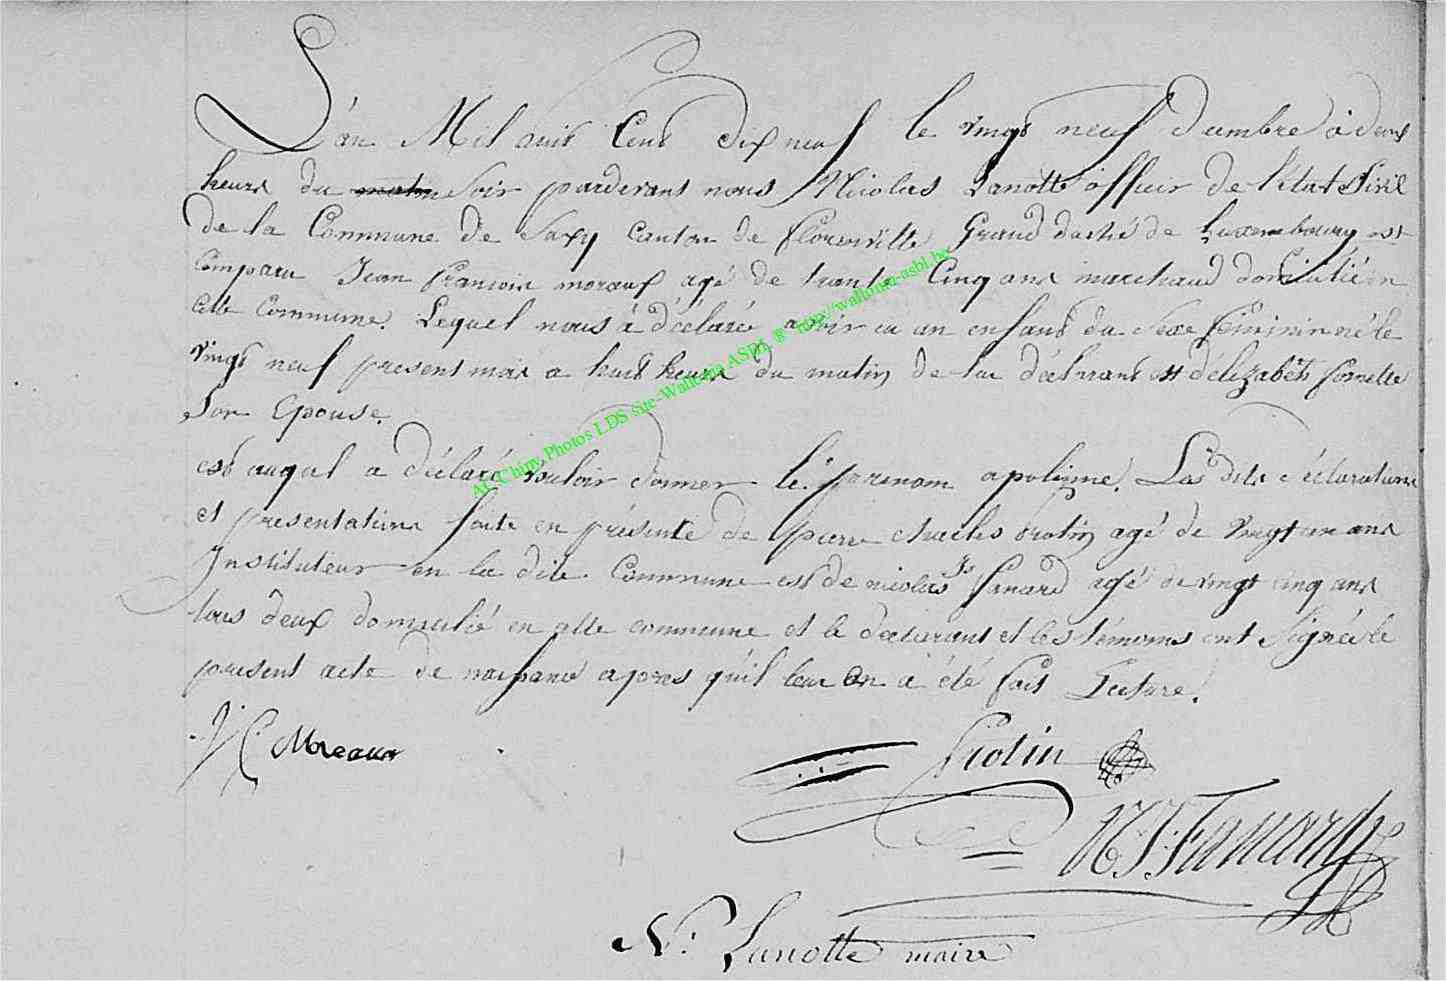 L'an Mil huit Cent dix neuf le vingt neuf d'cembre à deux
heures du matin Soir pardevant nous Nicolas Lanotte officier de l'état Sivil
de la Commune de Canton de florenville Grand duché de Luxembourg est
Comparu Jean François moraux agé de trente Cinq ans marchand domicilié en
cette Commune. Lequel nous à déclaré avoir eu un enfant du Sexe féminin né le
vingt neuf present mois a huit heures du matin de lui déclarant et d'élizabeth
Son Epouse.
est auquel a déclaré vouloir donner le prénom apolinne. Les dits déclarations
et presentations faite en présente de pierre charles agé de vingt un ans
Instituteur en la dite Commune est de nicolas Js fanard agé de vingt cinq ans
tous deux domicilié en cette commune et le declarant et les témoins ont Signée le
present acte de naissance apres qu'il leur en a été fait Lecture.
Moreaux
N: J: Fanard
N: Lanotte maire
AC Chiny Photos LDS site-Wallonia ASBL @ http://wallonia-asbl.be